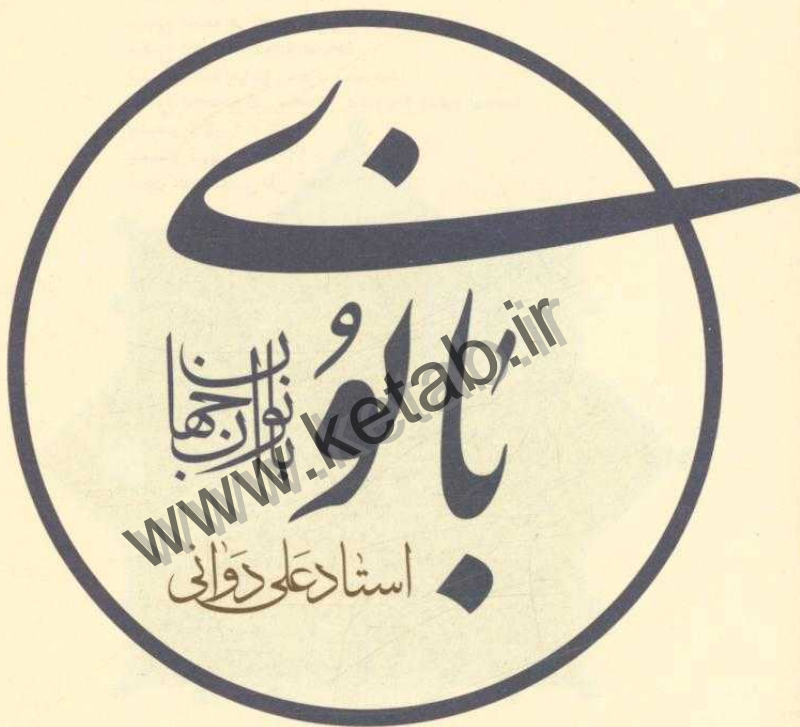 بانوی
بانوان جهان
استاد علی دوانی
www.ketab.ir